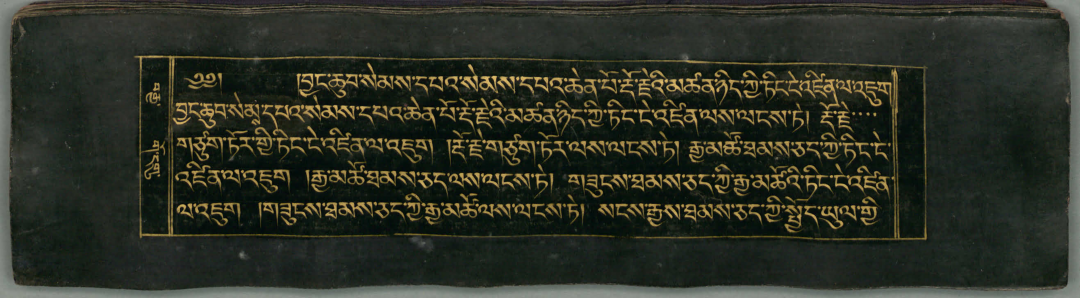 ༄༅། །བྱང་ཆུབ་སེམས་དཔའ་སེམས་དཔའ་ཆེན་པོ་རྡོ་རྗེའི་མཚན་ཉིད་ཀྱི་ཏིང་ངེ་འཛིན་ལ་འཇུག
བྱང་ཆུབ་སེམས་དཔའ་སེམས་དཔའ་ཆེན་པོ་རྡོ་རྗེའི་མཚན་ཉིད་ཀྱི་ཏིང་ངེ་འཛིན་ལས་ལངས་ཏེ། རྡོ་རྗེ་
གཙུག་ཏོར་གྱི་ཏིང་ངེ་འཛིན་ལ་འཇུག །རྡོ་རྗེ་གཙུག་ཏོར་ལས་ལངས་ཏེ། རྒྱ་མཚོ་ཐམས་ཅད་ཀྱི་ཏིང་ངེ་
འཛིན་ལ་འཇུག །རྒྱ་མཚོ་ཐམས་ཅད་ལས་ལངས་ཏེ། གཟུངས་ཐམས་ཅད་ཀྱི་རྒྱ་མཚོའི་ཏིང་ངེ་འཛིན་
ལ་འཇུག །གཟུངས་ཐམས་ཅད་ཀྱི་རྒྱ་མཚོ་ལས་ལངས་ཏེ། སངས་རྒྱས་ཐམས་ཅད་ཀྱི་སྤྱོད་ཡུལ་གྱི